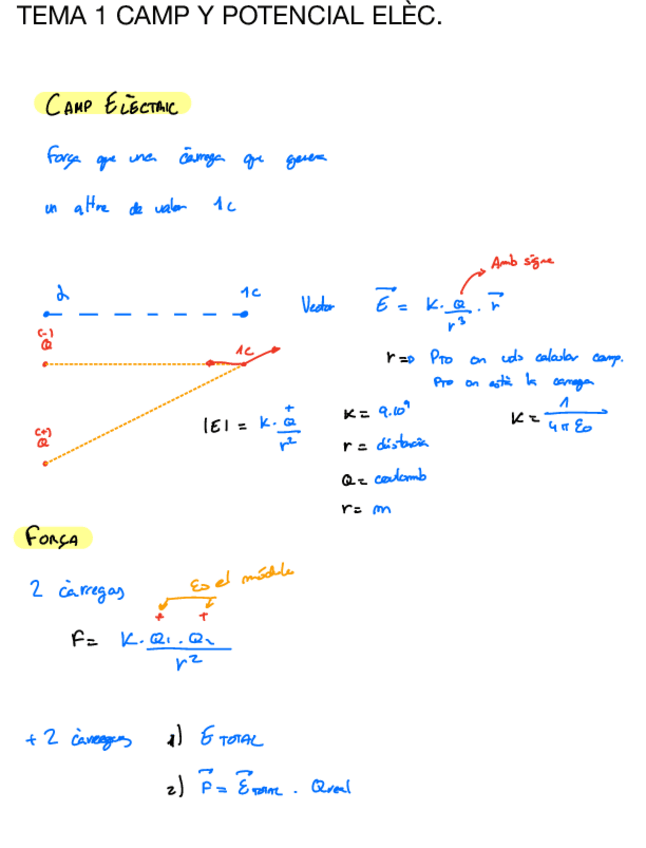 TEMA 1 CAMP Y POTENCIAL ELÈC.
CAMP ELÈCTRIC
Força que una càrrega que genera
un altre de valor 1C
d 1C
(-)
Q
1C
(+)
Q
Vector E⃗ = K · Q / r³ · r⃗
Amb signe
r => Pto on vols calcular camp.
Pto on està la carrega
|E| = K · Q⁺ / r²
K = 9·10⁹
r = distància
Q = coulomb
r = m
K = 1 / 4π ε₀
FORÇA
2 càrregas
Es el módulo
+ +
F = K · Q₁ · Q₂ / r²
+ 2 càrregas 1) E TOTAL
2) F⃗ = E⃗ TOTAL · Qreal